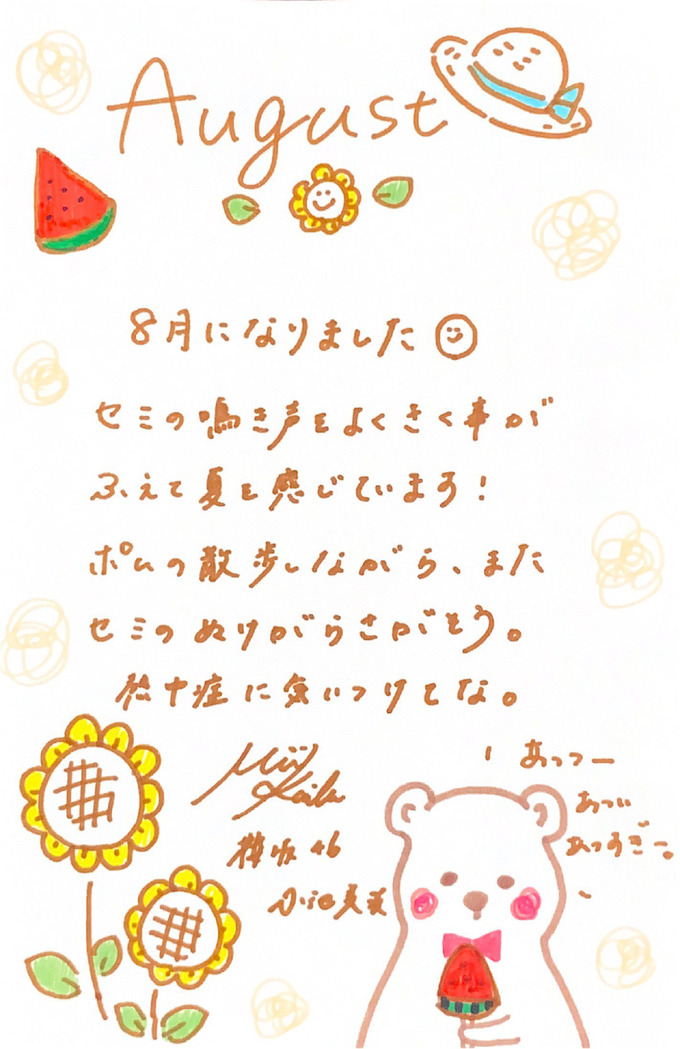 August
8月になりました
セミの鳴き声をよくきく事が
ふえて夏を感じています!
ポムの散歩しながら、また
セミのぬけがらさがそう。
熱中症に気いつけてな。
あっつー
あつい
あつすぎー。
櫻坂46
小池美波